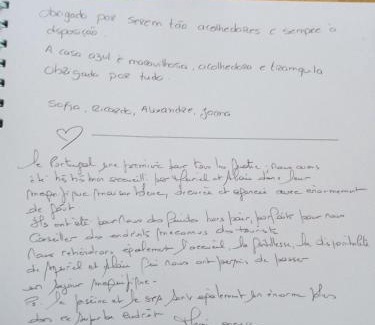 Obrigado por serem tão acolhedores e sempre à
disposição.
A casa azul é maravilhosa, acolhedora e tranquila
Obrigado por tudo.
Sofia, Ricardo, Alexandre, Joana
le Portugal une première pour tous les quatre, nous avons
été accueilli par et Alain dans leur
magnifique maison bleue, décorée et agencée avec énormément
de goût
Ils ont été pour nous des guides hors pair, parfaits pour nous
conseiller des endroits méconnus des touristes
Nous retiendrons également l'accueil, la gentillesse, la disponibilité
de et Alain qui nous ont permis de passer
un séjour magnifique.
la piscine et le spa sont également un énorme plus
dans ce superbe endroit